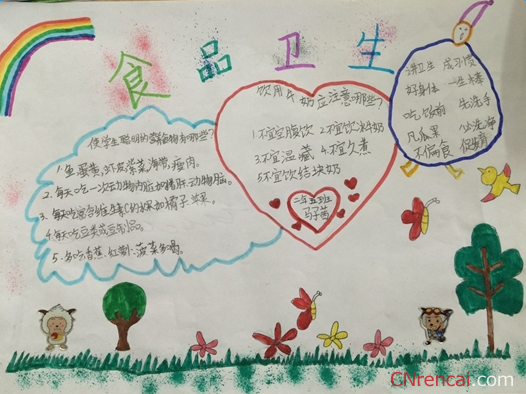 食品卫生
使学生聪明的营养食物有哪些?
1.鱼、蛋黄、虾皮、紫菜、海带、瘦肉。
2.每天吃一次动物内脏
3.每天吃富含维生素C的水果如橘子、苹果。
4.每天吃豆类或豆制品。
5.多吃香蕉、红
饮用牛奶应注意哪些?
1不宜空腹饮 2不宜饮冰奶
3不宜温藏 4.不宜久煮
5不宜饮结块奶
二年五班
马子茜
讲卫生 成习惯
好身体 一生棒
吃饭前 先洗手
凡瓜果 必洗净
不偏食 促发育
CNrencai.com